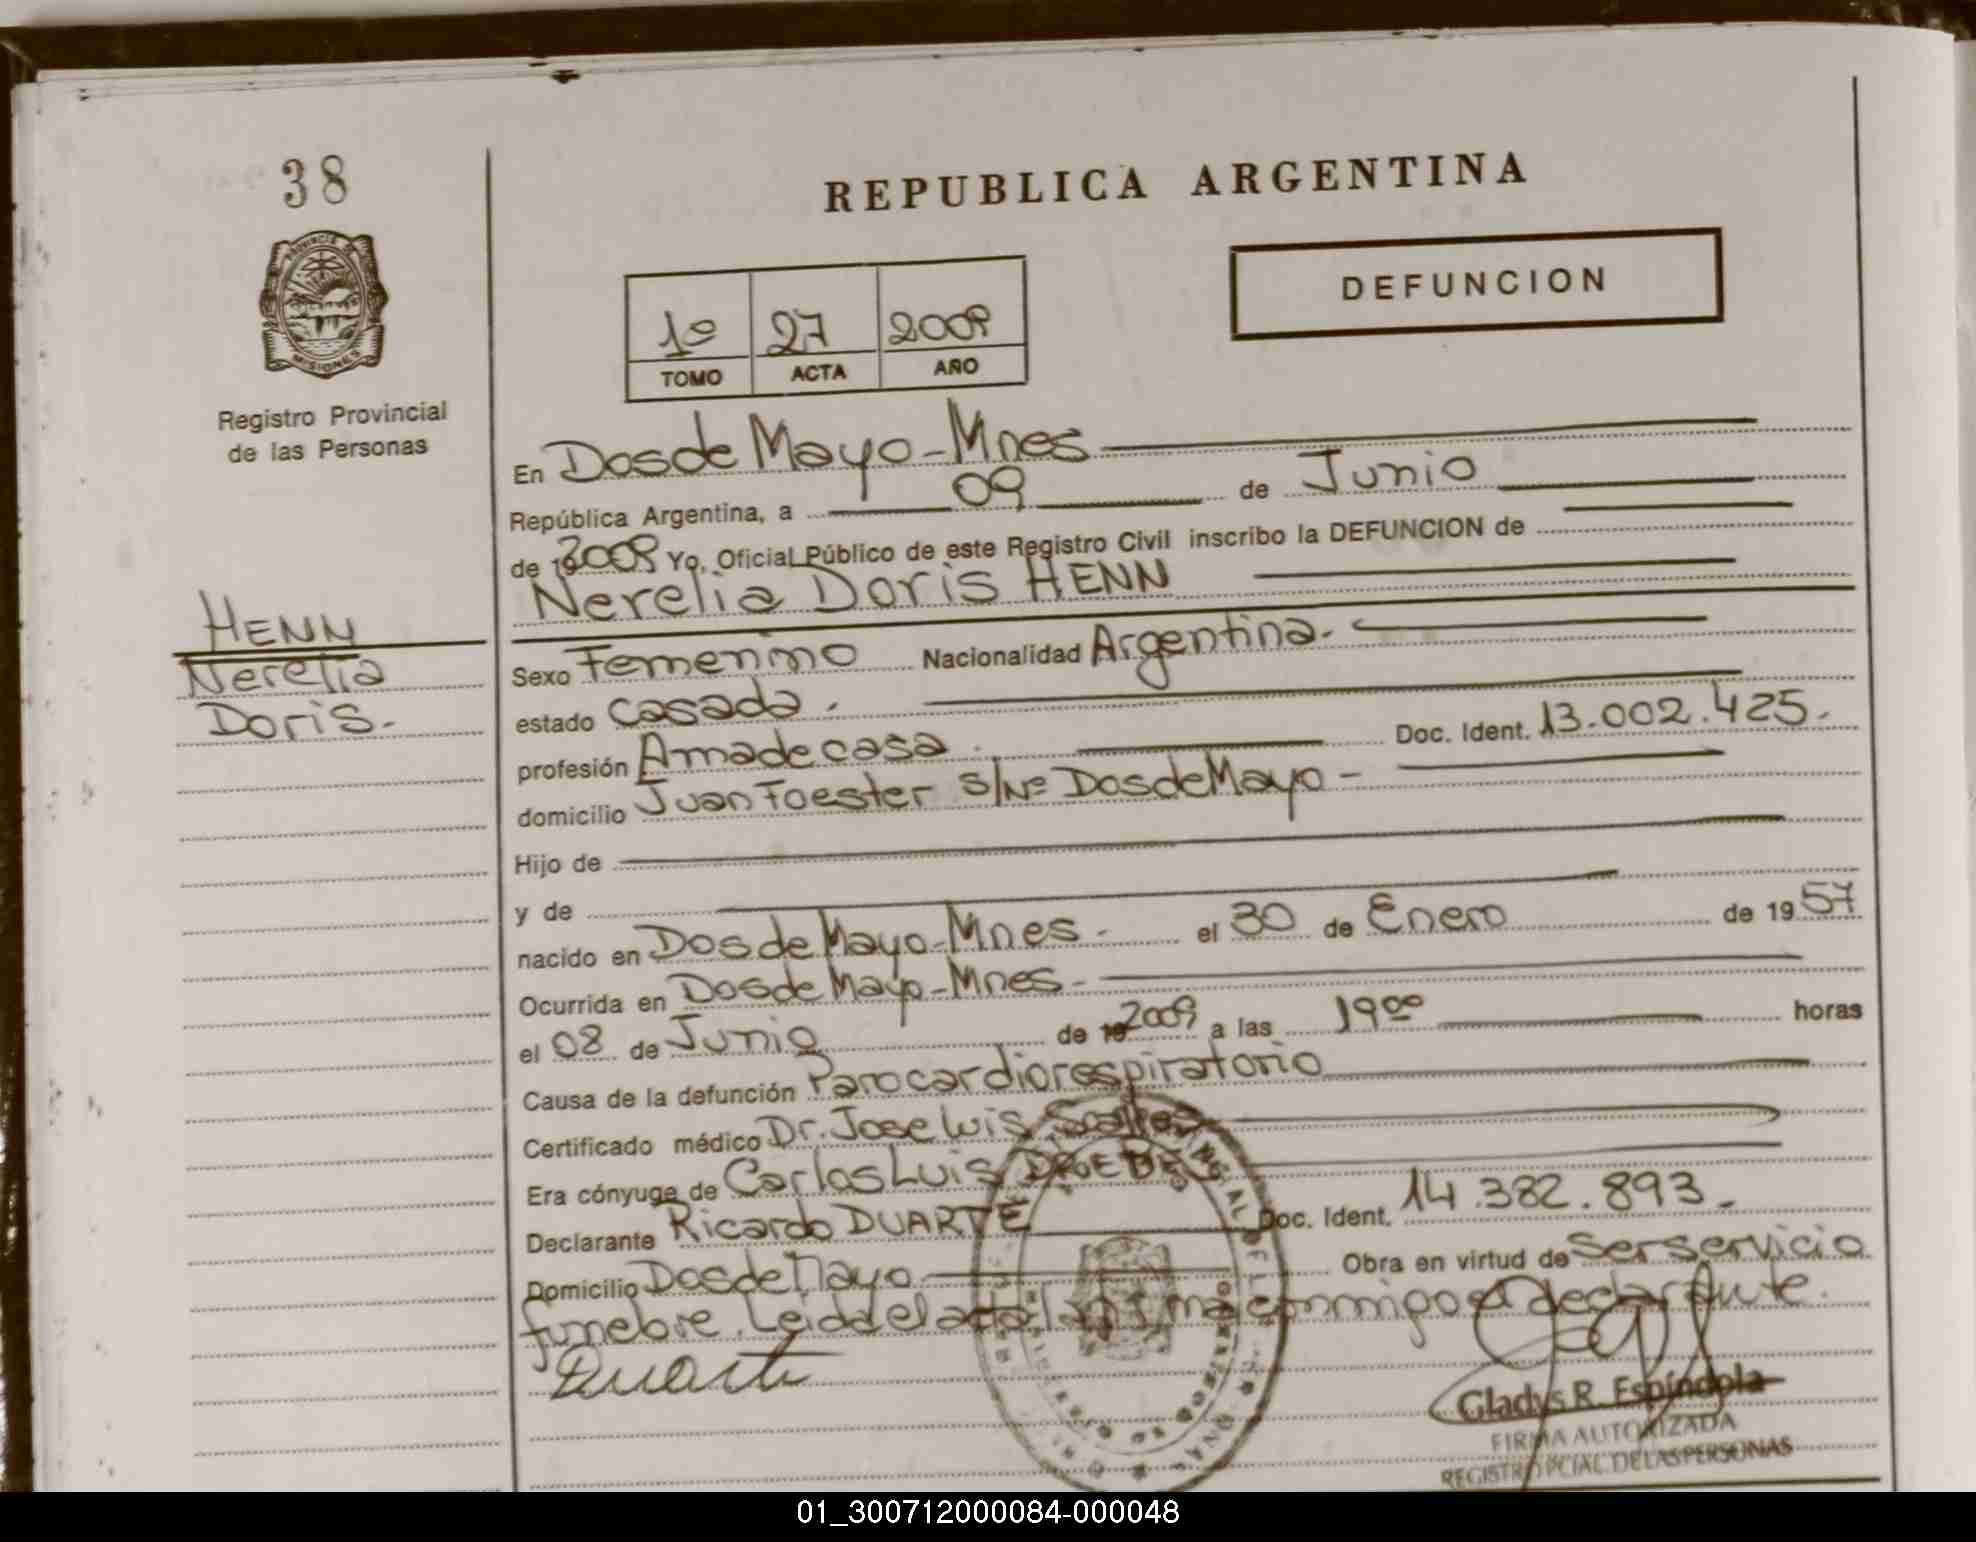 38
REPUBLICA ARGENTINA
DEFUNCION
PROVINCIA DE
MISIONES
1º 27 2009
TOMO ACTA AÑO
Registro Provincial
de las Personas
En Dos de Mayo - Mnes
República Argentina, a 09 de Junio
de 19 2009 Yo, Oficial Público de este Registro Civil inscribo la DEFUNCION de
Nerelia Doris HENN
HENN
Nerelia
Doris.-
Sexo Femenino Nacionalidad Argentina.-
estado casada.
profesión Ama de casa. Doc. Ident. 13.002.425.-
domicilio Juan Foester S/Nº Dos de Mayo -
Hijo de
y de
nacido en Dos de Mayo - Mnes.- el 30 de Enero de 1957
Ocurrida en Dos de Mayo - Mnes.-
el 08 de Junio de 19 2009 a las 19 00 horas
Causa de la defunción Paro cardiorespiratorio
Certificado médico Dr. Jose Luis
Era cónyuge de Carlos Luis
Declarante Ricardo DUARTE Doc. Ident. 14.382.893.-
Domicilio Dos de Mayo Obra en virtud de Ser servicio
funebre. Leida el acta la firma conmigo el declarante.
Duarte
Gladys R. Espíndola
FIRMA AUTORIZADA
REGISTRO PCIAL. DE LAS PERSONAS
01_300712000084-000048